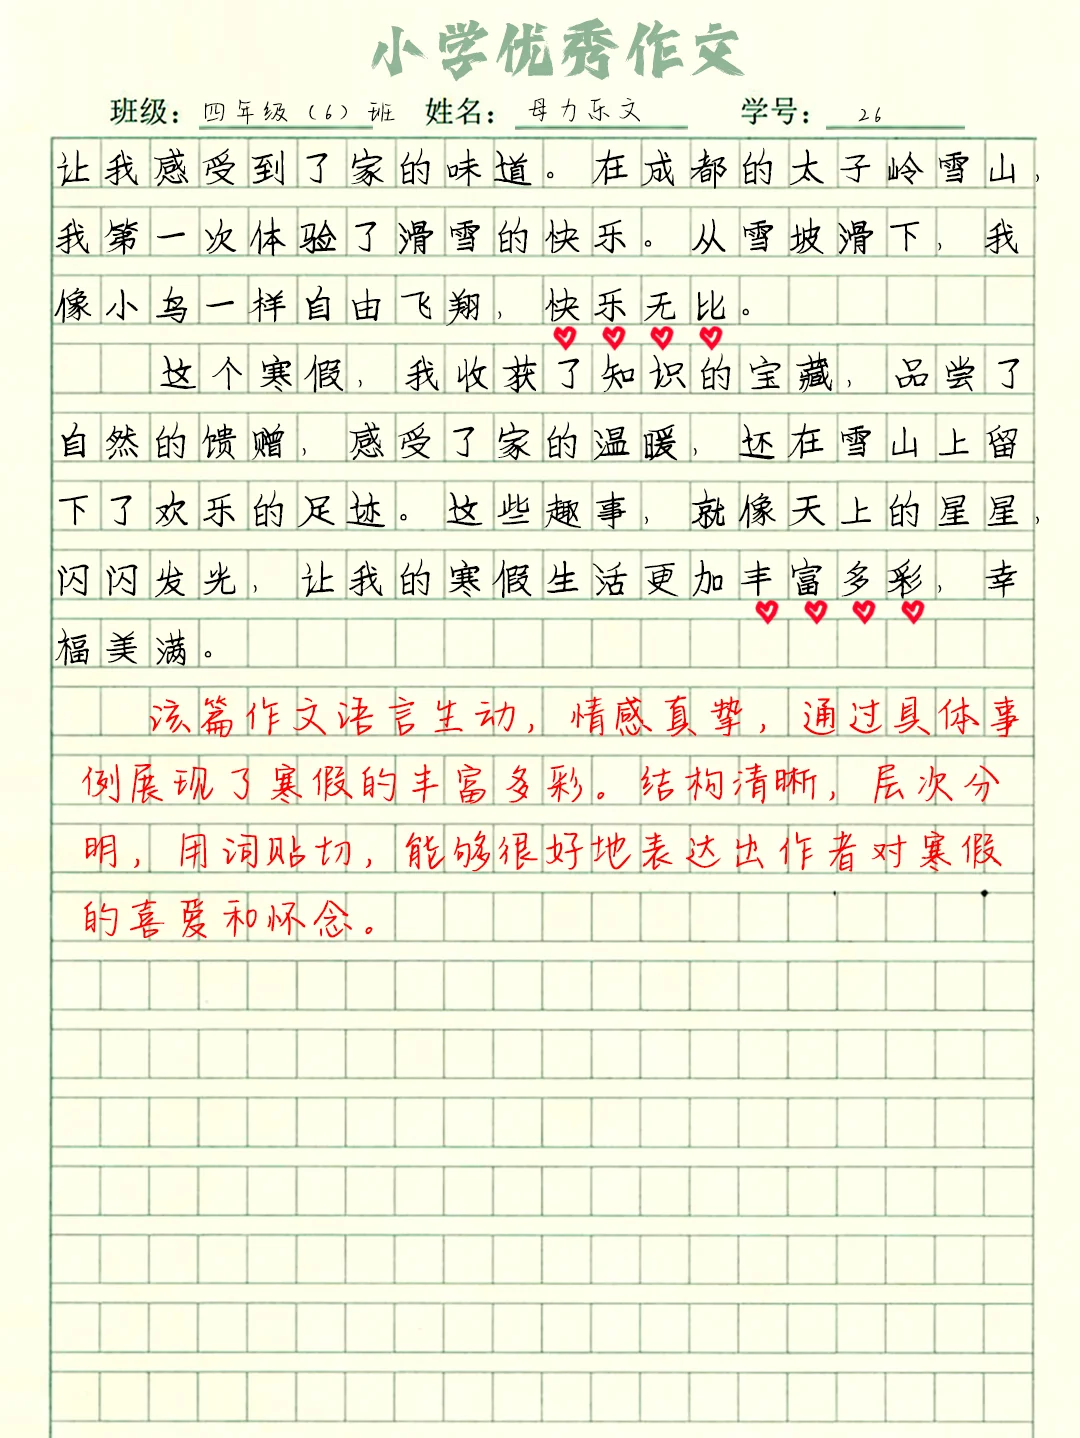 小学优秀作文
班级：四年级（6）班 姓名：母力乐文 学号：26
让我感受到了家的味道。在成都的太子岭雪山，
我第一次体验了滑雪的快乐。从雪坡滑下，我
像小鸟一样自由飞翔，快乐无比。
这个寒假，我收获了知识的宝藏，品尝了
自然的馈赠，感受了家的温暖，还在雪山上留
下了欢乐的足迹。这些趣事，就像天上的星星，
闪闪发光，让我的寒假生活更加丰富多彩，幸
福美满。
该篇作文语言生动，情感真挚，通过具体事
例展现了寒假的丰富多彩。结构清晰，层次分
明，用词贴切，能够很好地表达出作者对寒假
的喜爱和怀念。